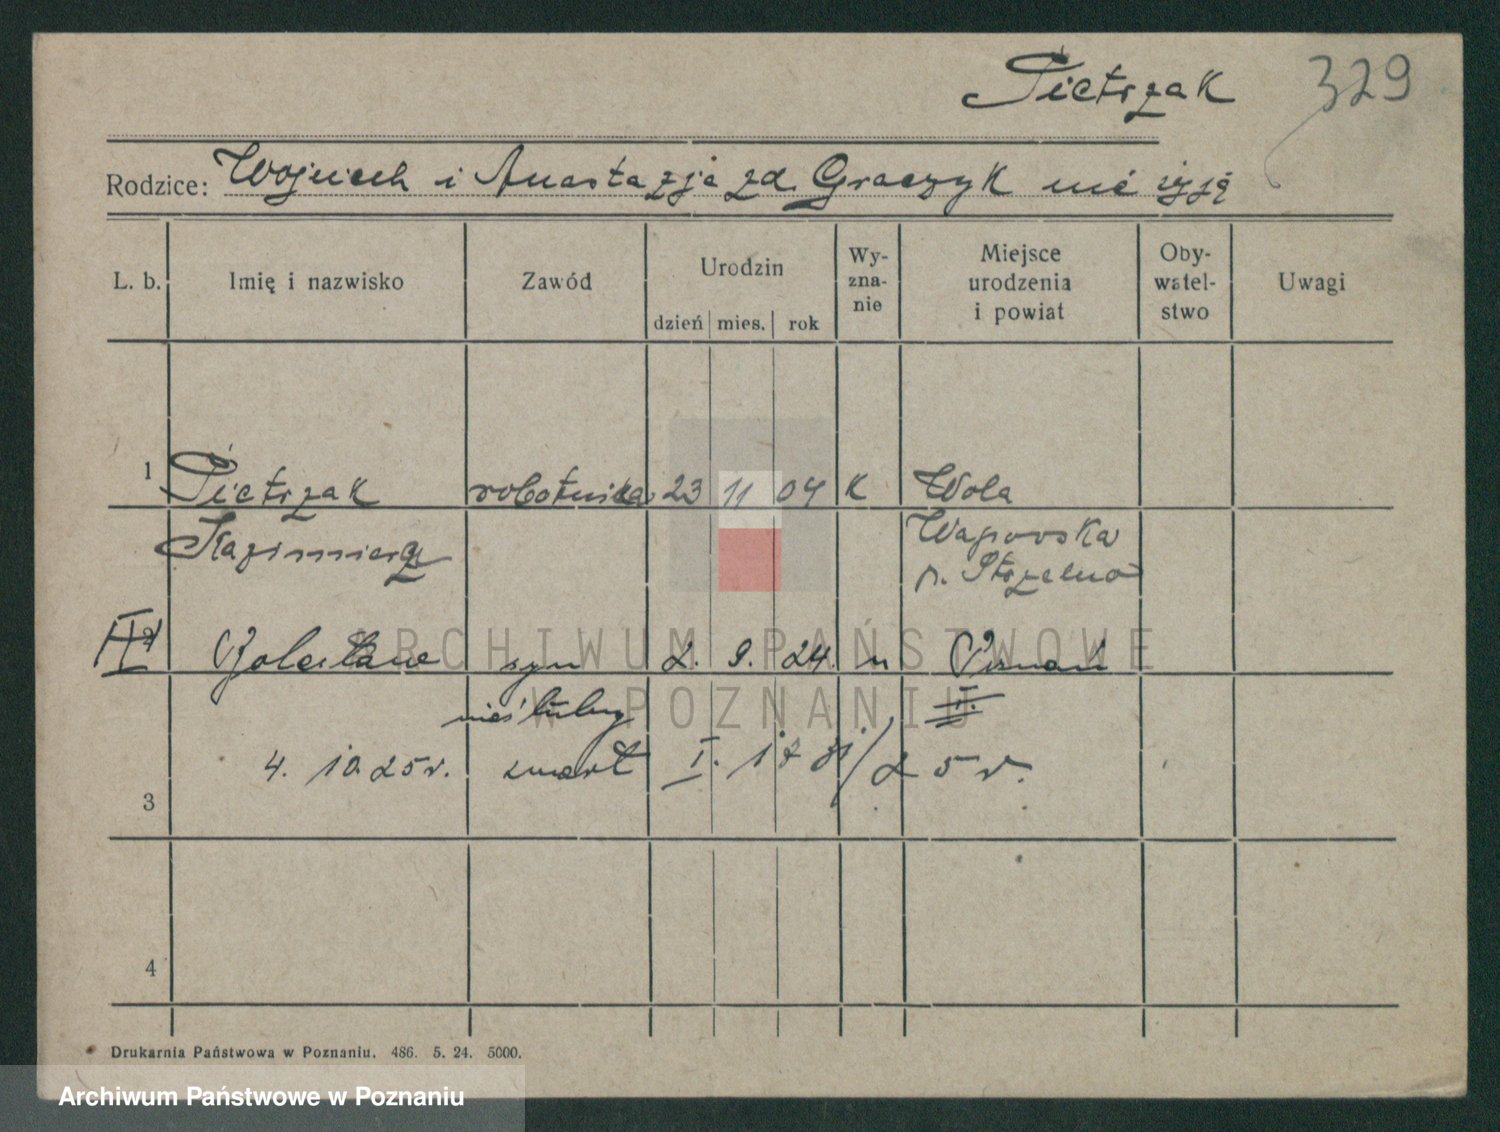 Pietrzak 329
Rodzice: Wojciech i Anastazja zd. Graczyk nie żyją
L. b. Imię i nazwisko Zawód Urodzin dzień mies. rok Wy-zna-nie Miejsce urodzenia i powiat Oby-watel-stwo Uwagi
1 Pietrzak robotnica 23 11 04 K Wola
Kazimiera Wapowska
p. Strzelno
2 syn 2. 9. 24. Poznań
nieślubny II.
4. 10. 25 r. zmarł I. 25 r.
3
4
Drukarnia Państwowa w Poznaniu. 486. 5. 24. 5000.
ARCHIWUM PAŃSTWOWE
W POZNANIU
Archiwum Państwowe w Poznaniu